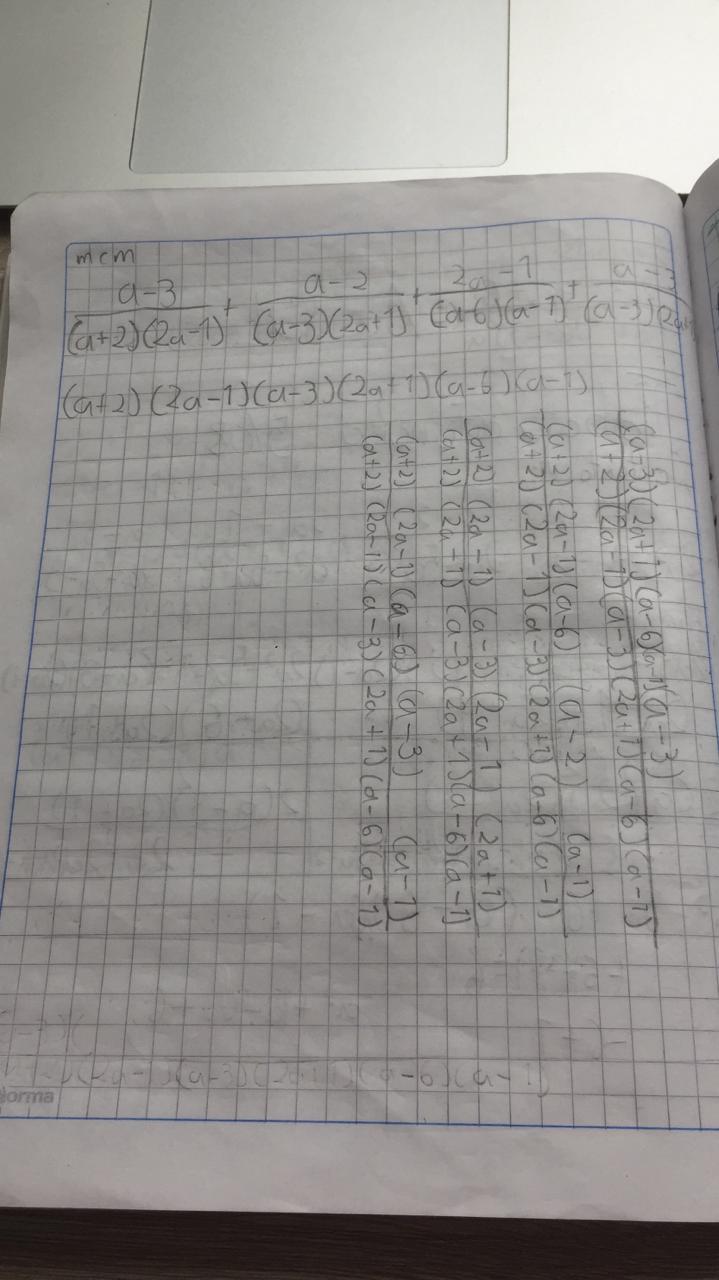 mcm
a-3 + a-2 + 2a-1 + a-3
(a+2)(2a-1) (a-3)(2a+1) (a-6)(a-1) (a-3)(2a+
(a+2)(2a-1)(a-3)(2a+1)(a-6)(a-1)
(a-3)(2a+1)(a-6)(a-1)(a-3)
(a+2)(2a-1)(a-3)(2a+1)(a-6)(a-1)
(a+2)(2a-1)(a-6)(a-2)(a-1)
(a+2)(2a-1)(a-3)(2a+1)(a-6)(a-1)
(a+2)(2a-1)(a-3)(2a-1)(2a+1)
(a+2)(2a-1)(a-3)(2a+1)(a-6)(a-1)
(a+2)(2a-1)(a-6)(a-3)(a-1)
(a+2)(2a-1)(a-3)(2a+1)(a-6)(a-1)
Norma